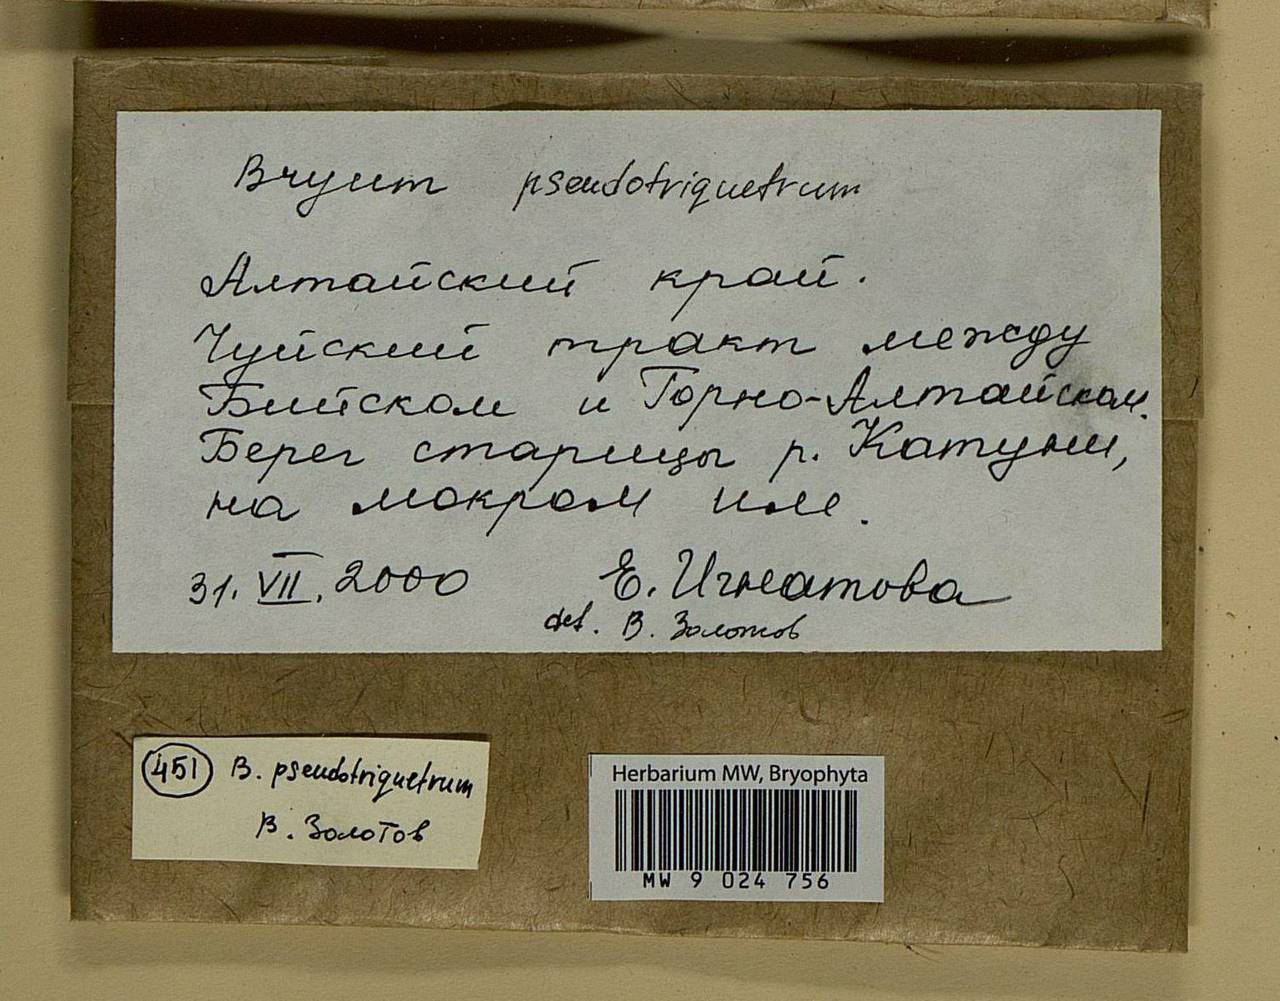 Bryum pseudotriquetrum
Алтайский край.
Чуйский тракт между
Бийском и Горно-Алтайском.
Берег старицы р. Катуни,
на мокром иле.
31.VII.2000 Е. Игнатова
det. В. Золотов
451 B. pseudotriquetrum
В. Золотов
Herbarium MW, Bryophyta
MW 9 024 756